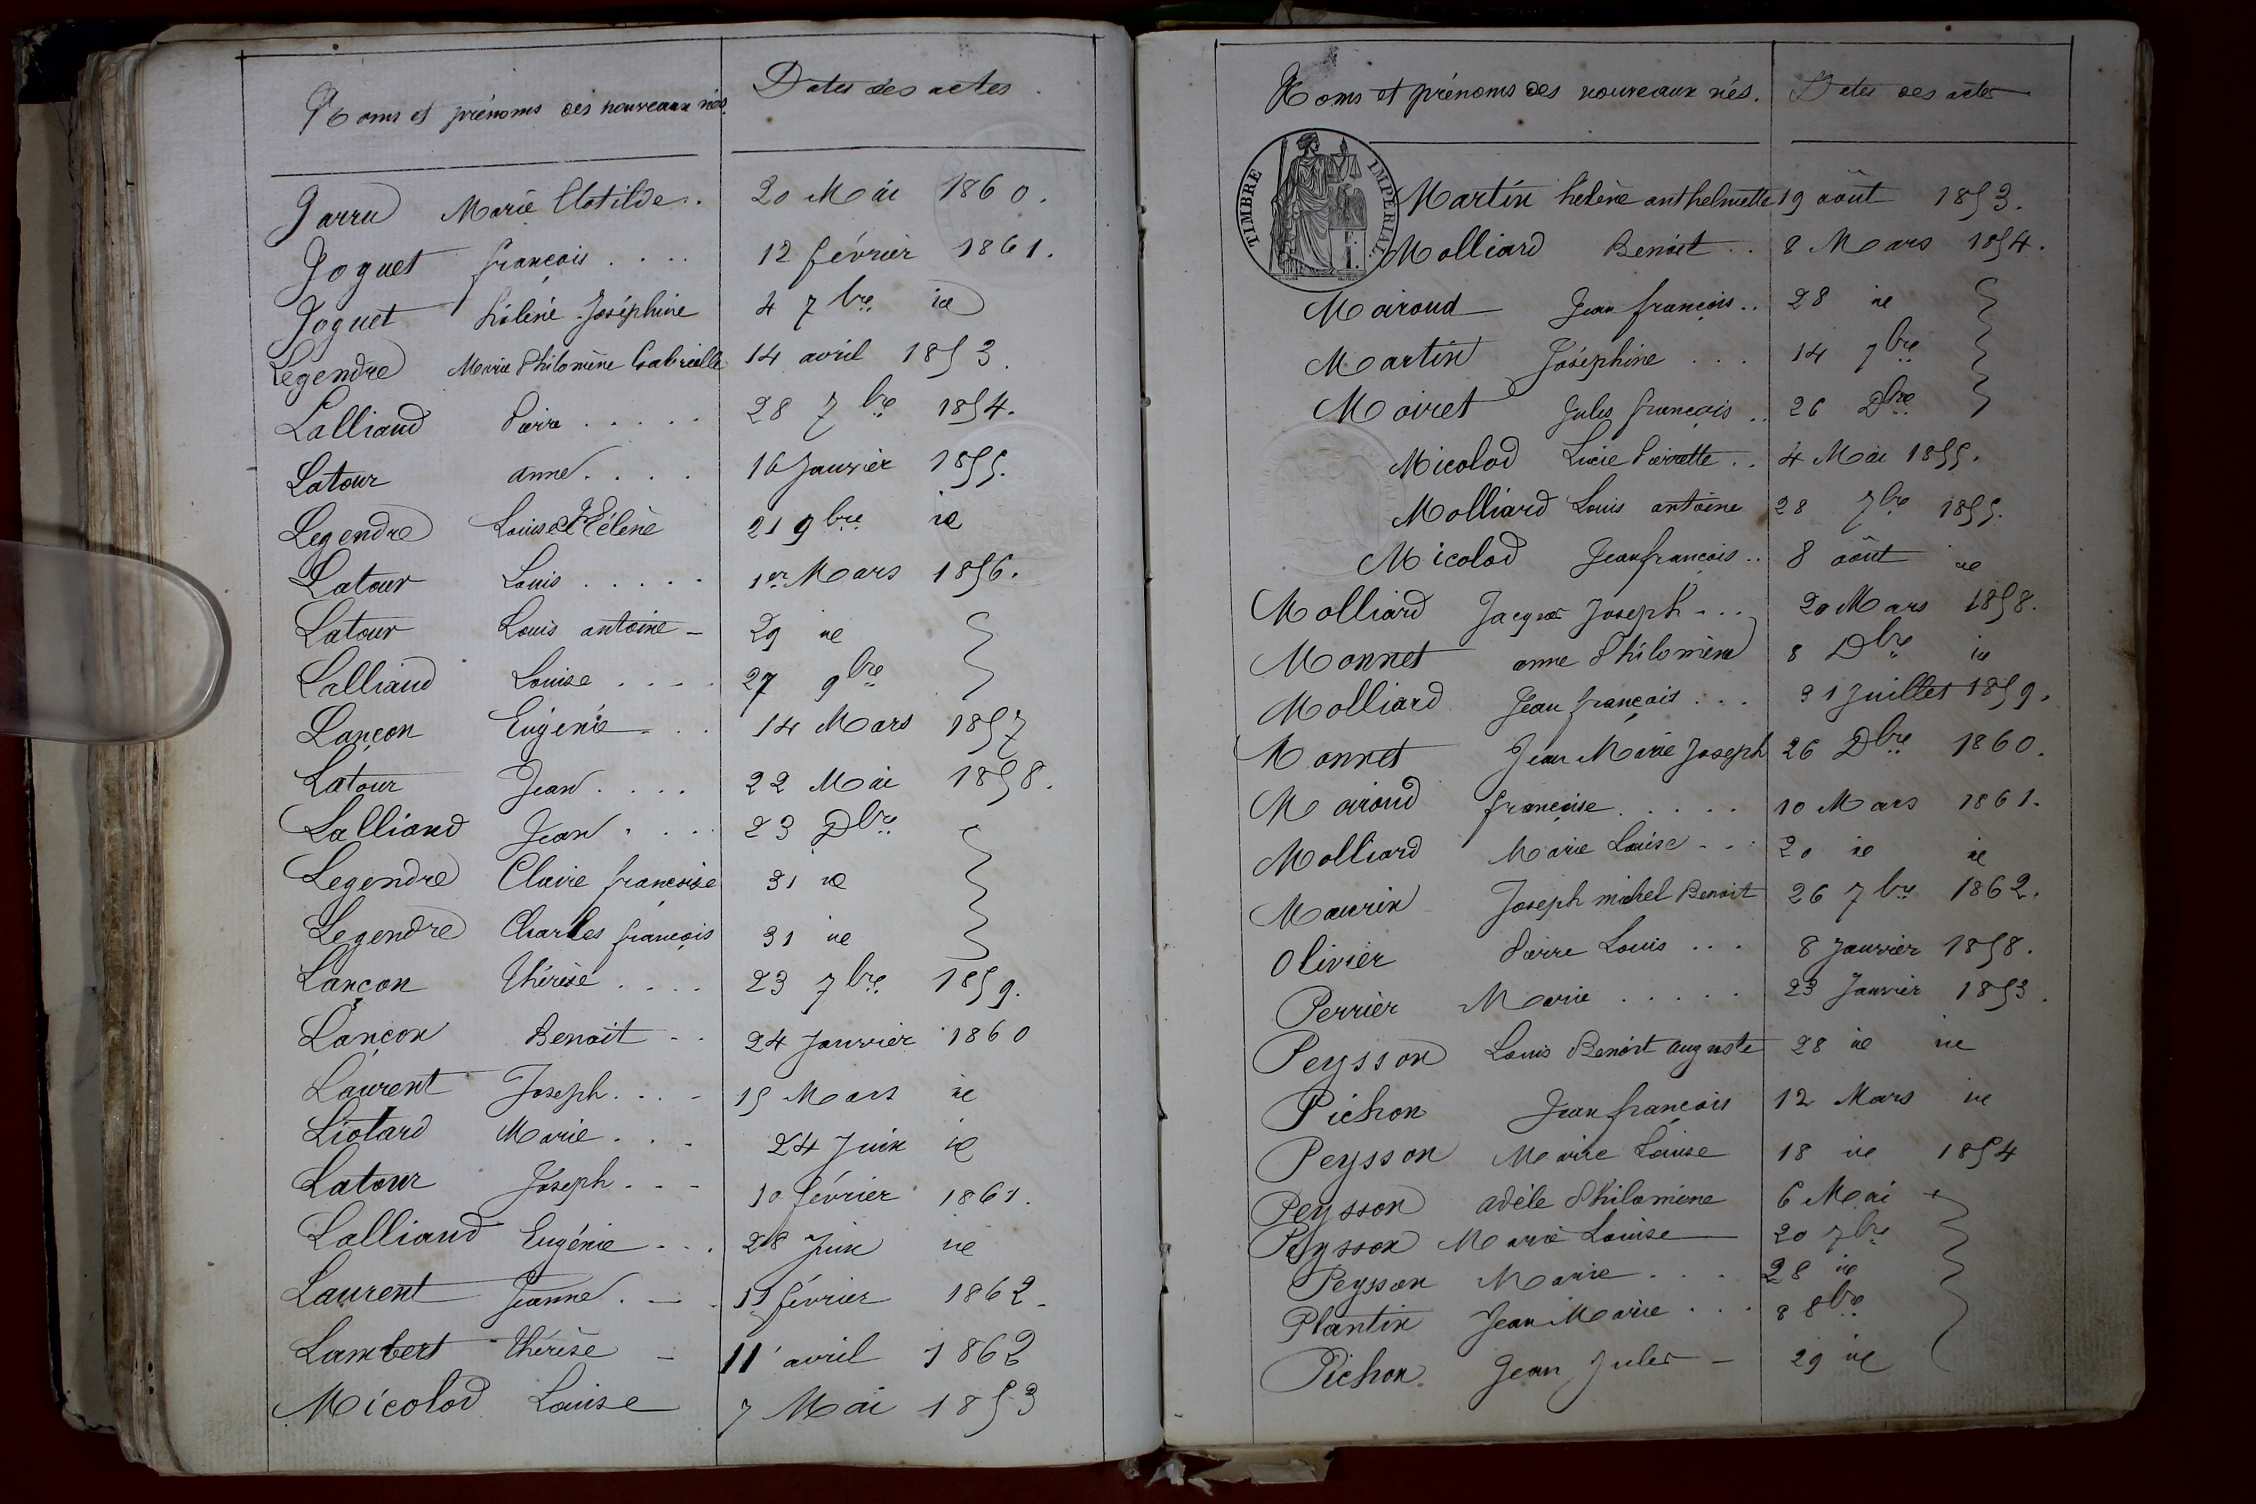 Noms et prénoms des nouveaux nés. Dates des actes.
Jarru Marie Clotilde. 20 Mai 1860.
Joguet françois .... 12 février 1861.
Joguet hélène Joséphine 4 7bre id
Legendre Marie Philomène Gabrielle 14 avril 1853.
Lalliaud Pierre ..... 28 7bre 1854.
Latour anne .... 16 Janvier 1855.
Legendre Louise Hélène 21 9bre id
Latour Louis ..... 1er Mars 1856.
Latour Louis antoine - 29 id
Lalliaud Louise .... 27 9bre
Lançon Eugénie ... 14 Mars 1857
Latour Jean .... 22 Mai 1858.
Lalliand Jean .... 23 Dbre
Legendre Claire françoise 31 id
Legendre Charles françois 31 id
Lançon Thérèse .... 23 7bre 1859.
Lançon Benoit .. 24 Janvier 1860
Laurent Joseph .... 15 Mars id
Liotard Marie ... 24 Juin id
Latour Joseph ... 10 février 1861.
Lalliaud Eugénie ... 28 Juin id
Laurent Jeanne . - . 11 février 1862.
Lambert Thérèse - 11 avril 1862
Micolod Louise 7 Mai 1853
Noms et prénoms des nouveaux nés. Dates des actes
TIMBRE IMPÉRIAL
Martin hélène anthelmette 19 août 1853.
Molliard Benoit .. 8 Mars 1854.
Moiroud Jean françois .. 28 id
Martin Joséphine ... 14 7bre
Moiret Jules françois .. 26 Dbre
Micolod Lucie Pierrette .. 4 Mai 1855.
Molliard Louis antoine 28 7bre 1855.
Micolod Jean françois .. 8 août id
Molliard Jacques Joseph ... 20 Mars 1858.
Monnet anne Philomène 8 Dbre id
Molliard Jean françois ... 31 Juillet 1859.
Monnet Jean Marie Joseph 26 Dbre 1860.
Moiroud françoise ..... 10 Mars 1861.
Molliard Marie Louise ... 20 id id
Maurin Joseph michel Benoit 26 7bre 1862.
Olivier Pierre Louis ... 8 Janvier 1858.
Perrier Marie ..... 23 Janvier 1853.
Peysson Louis Benoit auguste 28 id id
Pichon Jean françois 12 Mars id
Peysson Marie Louise 18 id 1854
Peysson adèle Philomène 6 Mai
Peysson Marie Louise 20 7bre
Peysson Marie .... 28 id
Plantin Jean Marie ... 8 8bre
Pichon Jean Jules - 29 id